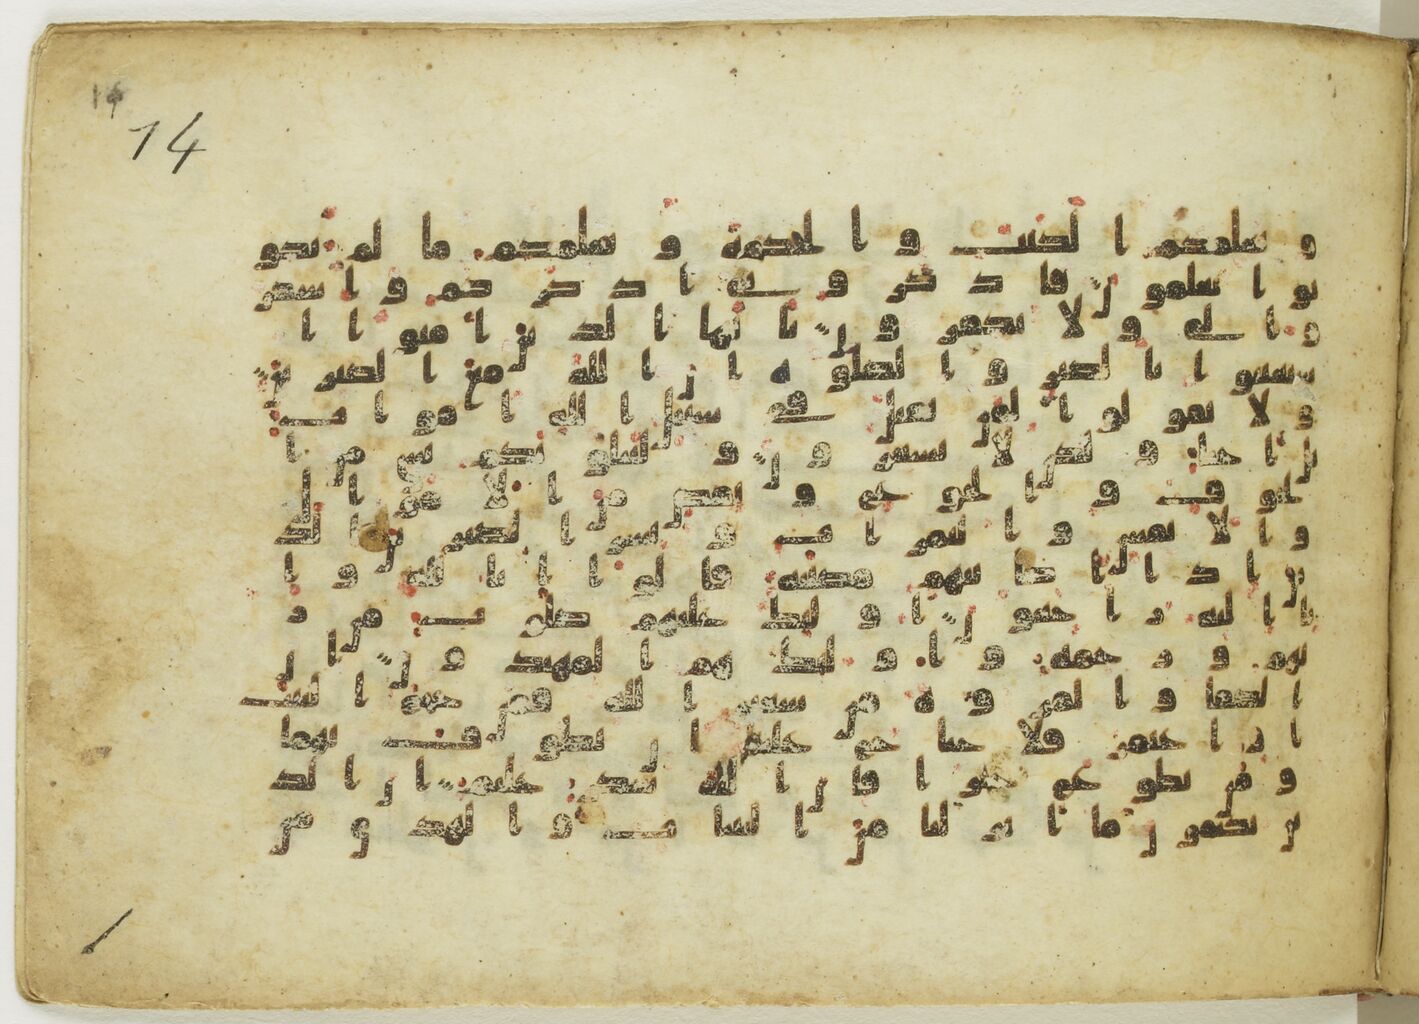 14
14
و يعلمكم الكتب و الحكمة و يعلمكم ما لم تكو
نو ا تعلمو ن فا ذ كر و ني ا ذ كر كم و ا شكر
و ا لي و لا تكفر و ن يا يها ا لذ ين ا منو ا ا
ستعينو ا با لصبر و ا لصلو ة ا ن ا لله مع ا لصبر ين
و لا تقو لو ا لمن يقتل في سبيل ا لله ا مو ت
بل ا حيا و لكن لا تشعر و ن و لنبلو نكم بشي من ا
لخو ف و ا لجو ع و نقص من ا لا مو ا ل
و ا لا نفس و ا لثمر ا ت و بشر ا لصبر ين ا لذ
ين ا ذ ا ا صا بتهم مصيبة قا لو ا ا نا لله و ا
نا ا ليه ر ا جعو ن ا و ليك عليهم صلو ت من ر
بهم و ر حمة و ا و ليك هم ا لمهتد و ن ا ن
ا لصفا و ا لمر و ة من شعير ا لله فمن حج ا لبيت
ا و ا عتمر فلا جنا ح عليه ا ن يطو ف بهما
و من تطو ع خير ا فا ن ا لله شكر عليم ا ن ا لذ
ين يكتمو ن ما ا نز لنا من ا لبينا ت و ا لهد ى من